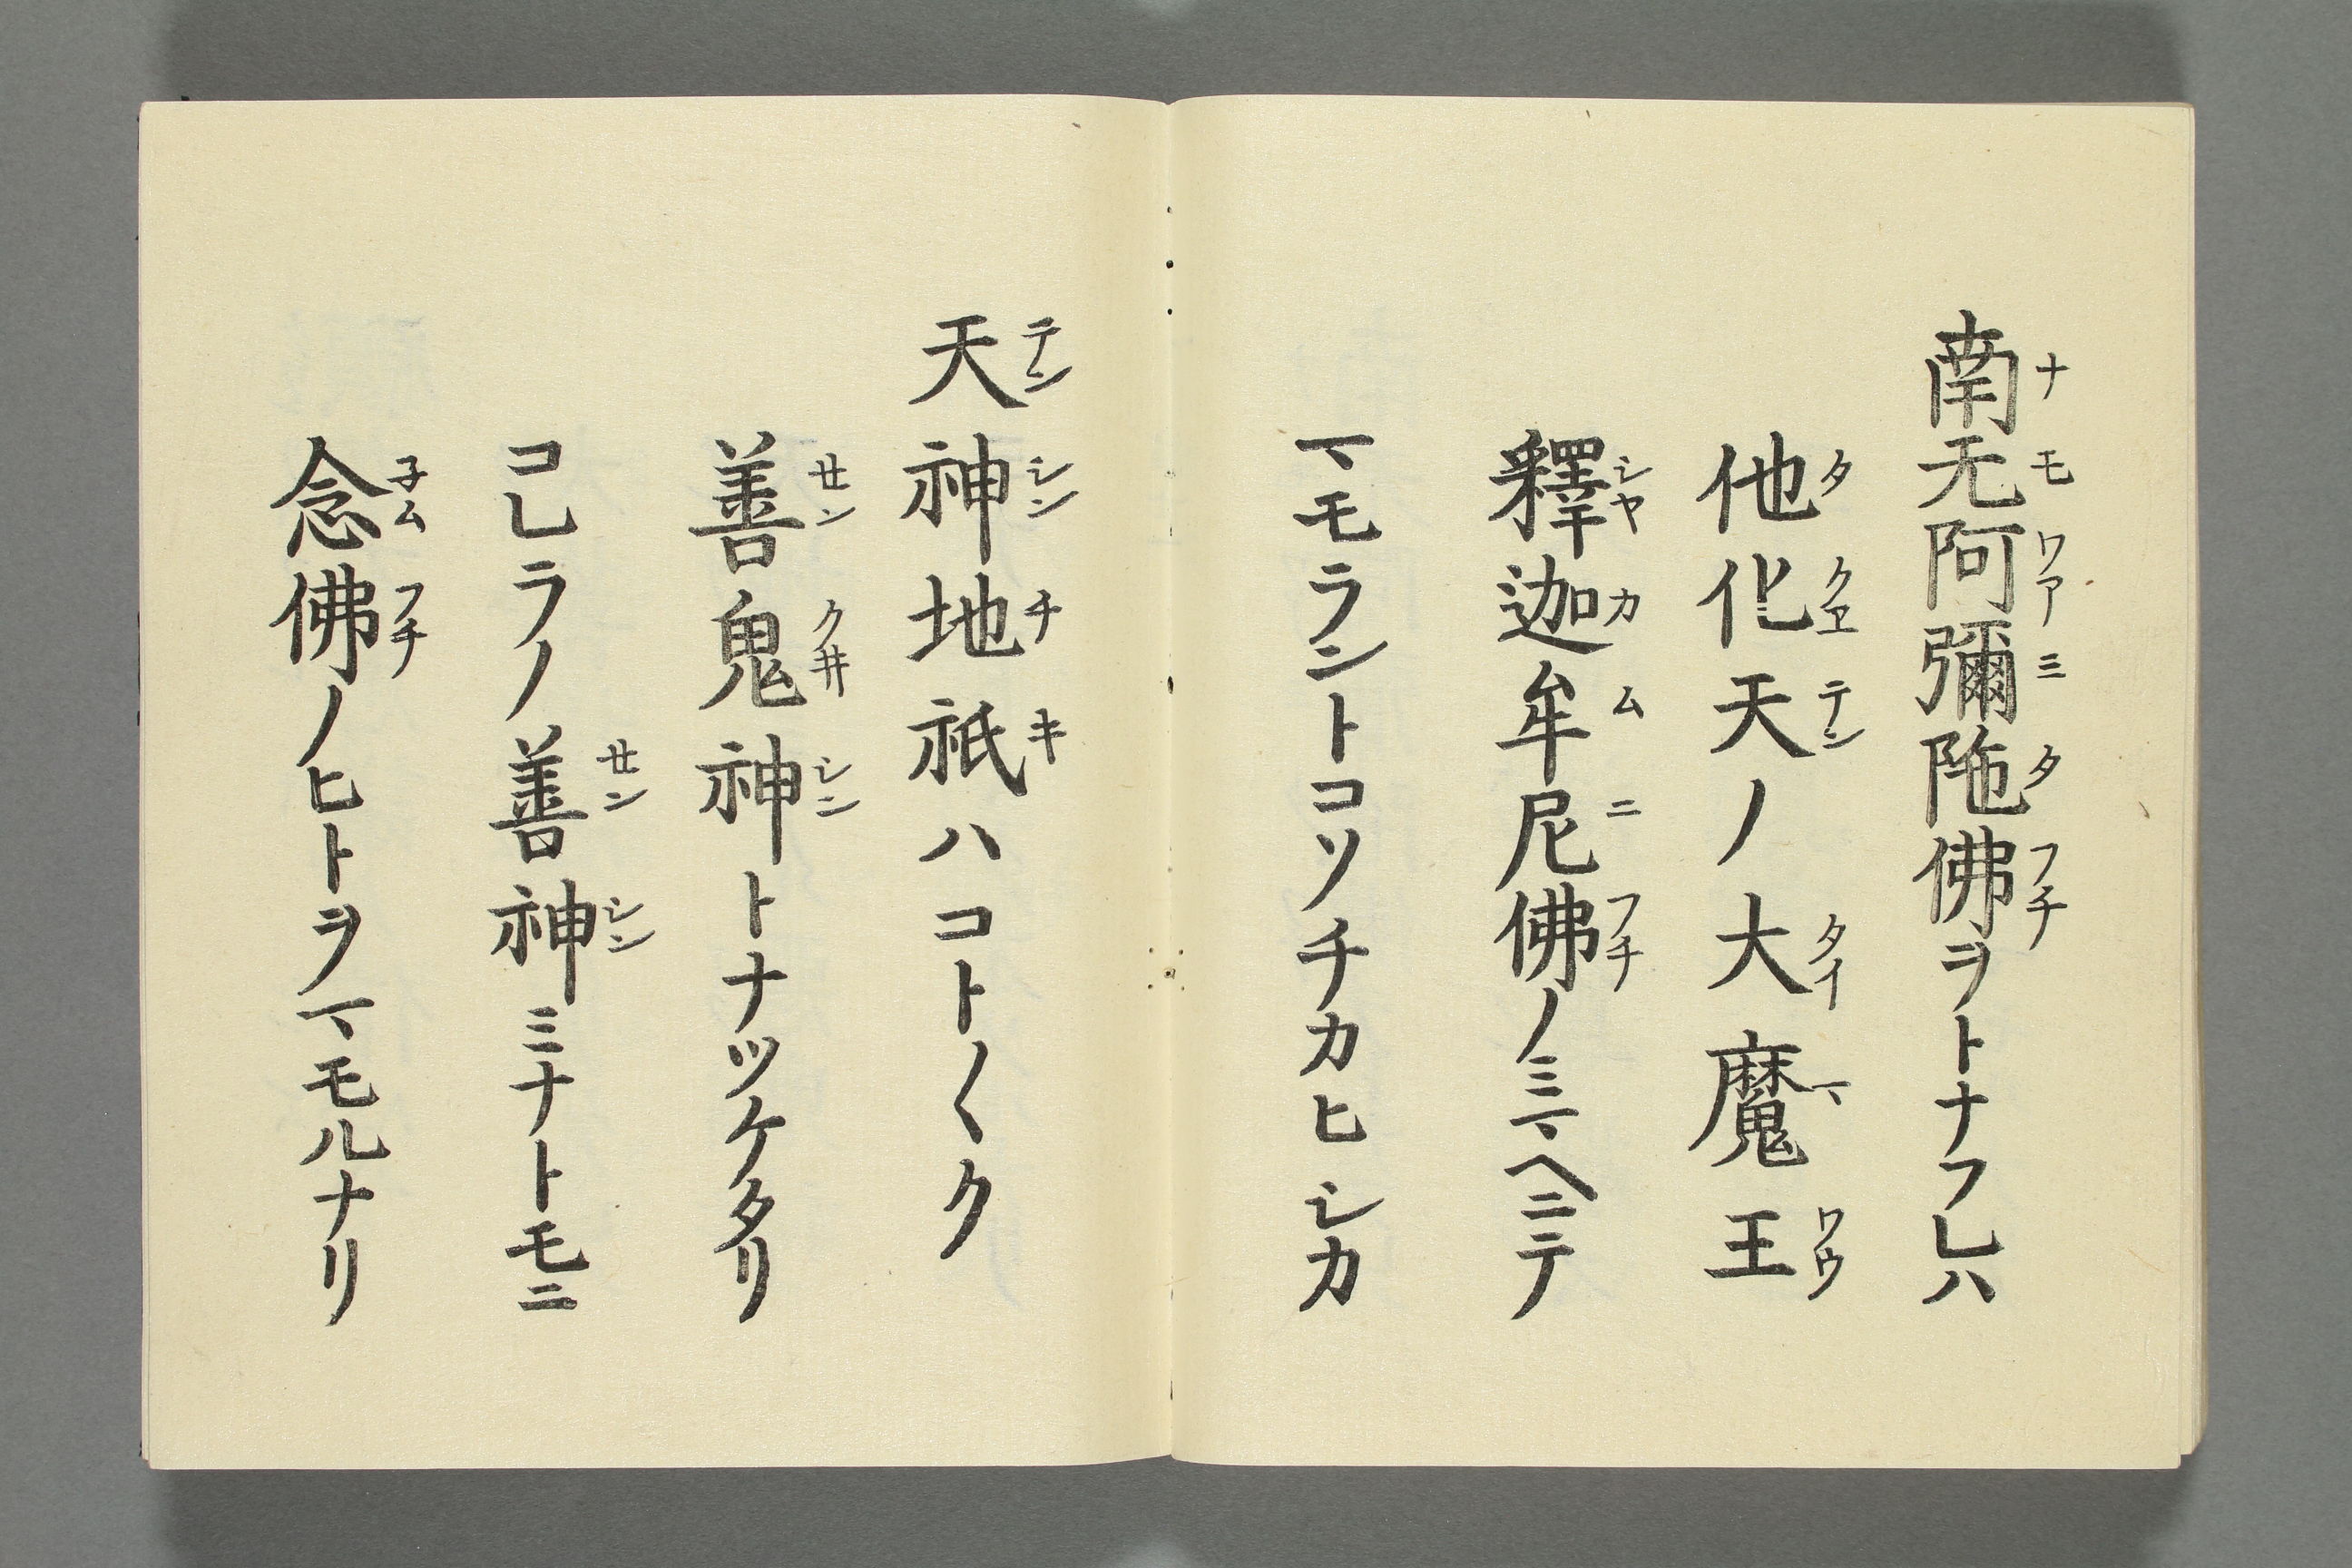 南无阿彌陁佛ヲトナフレハ
他化天ノ大魔王
釋迦牟尼佛ノミマヘニテ
マモラントコソチカヒシカ
天神地祇ハコト〱ク
善鬼神トナツケタリ
コレラノ善神ミナトモニ
念佛ノヒトヲマモルナリ